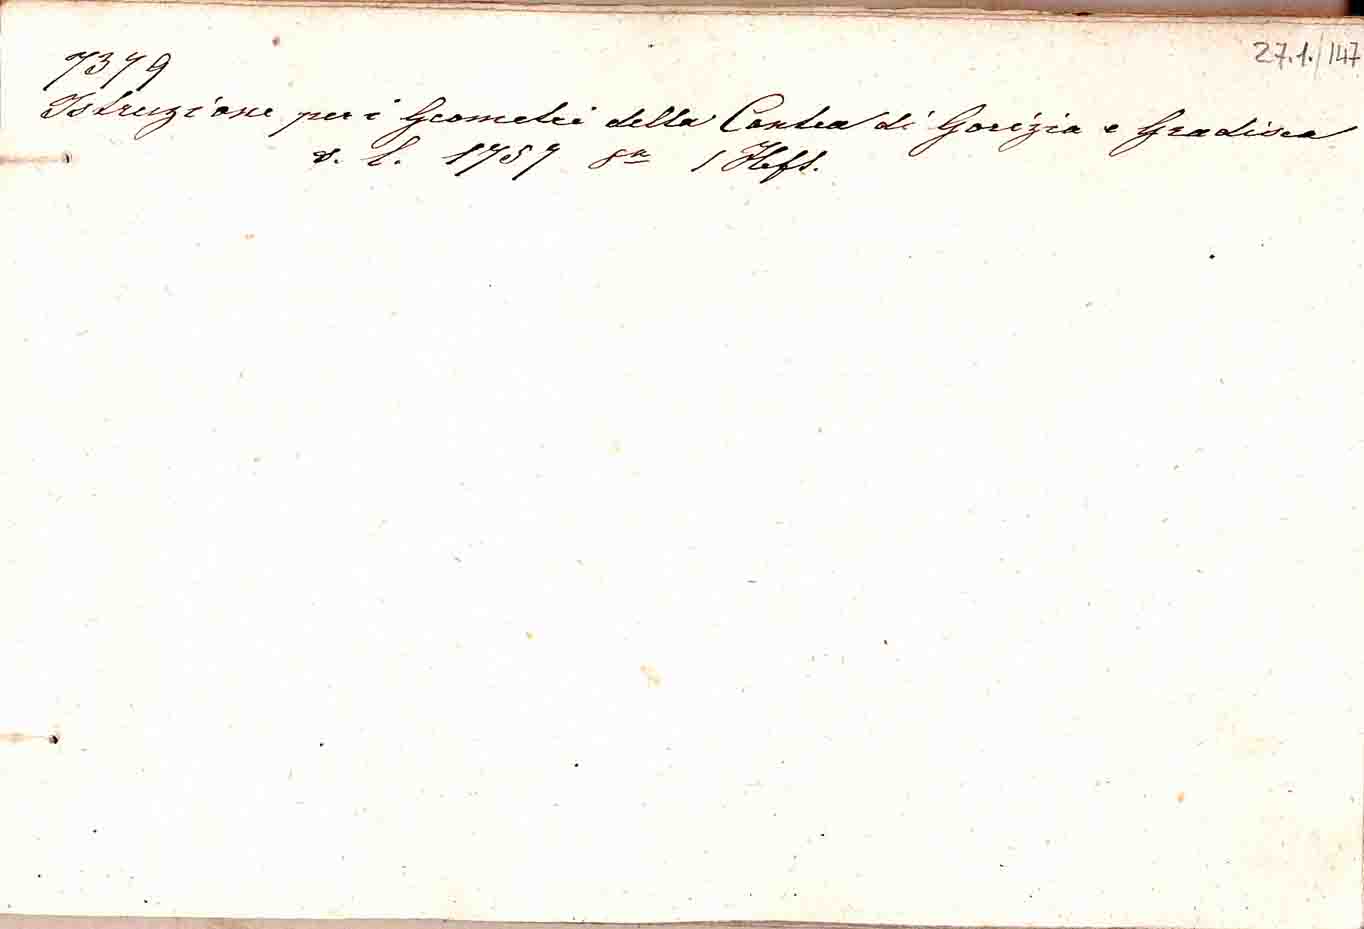 27.1./147
7379
Istruzione per i Geometri della Contea di Gorizia e Gradisca
s. l. 1757 8° 1 Heft.